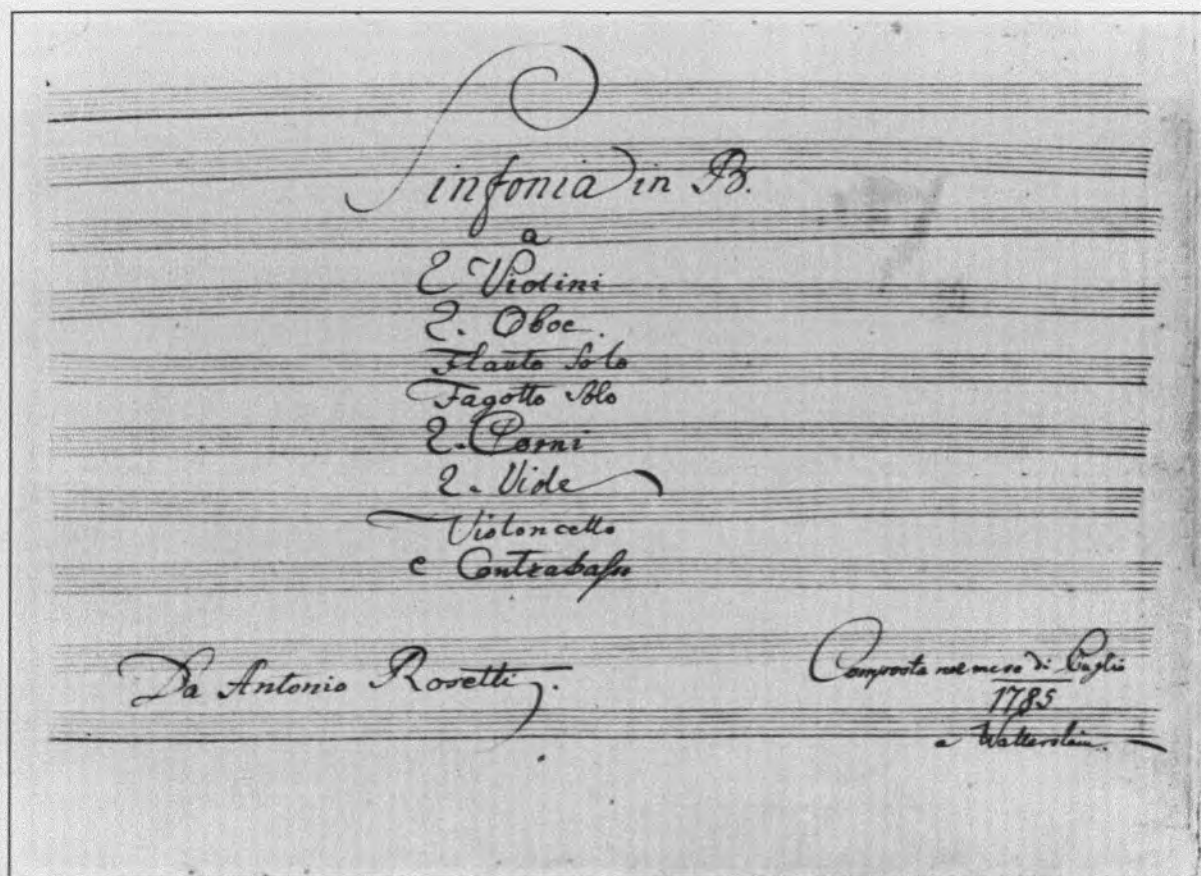 Sinfonia in B.
a
2 Violini
2. Oboe.
Flauto Solo
Fagotto Solo
2. Corni
2. Viole
Violoncello
e Contrabasso
Da Antonio Rosetti.
Composta nel mese di Luglio
1785
a Wallerstein.